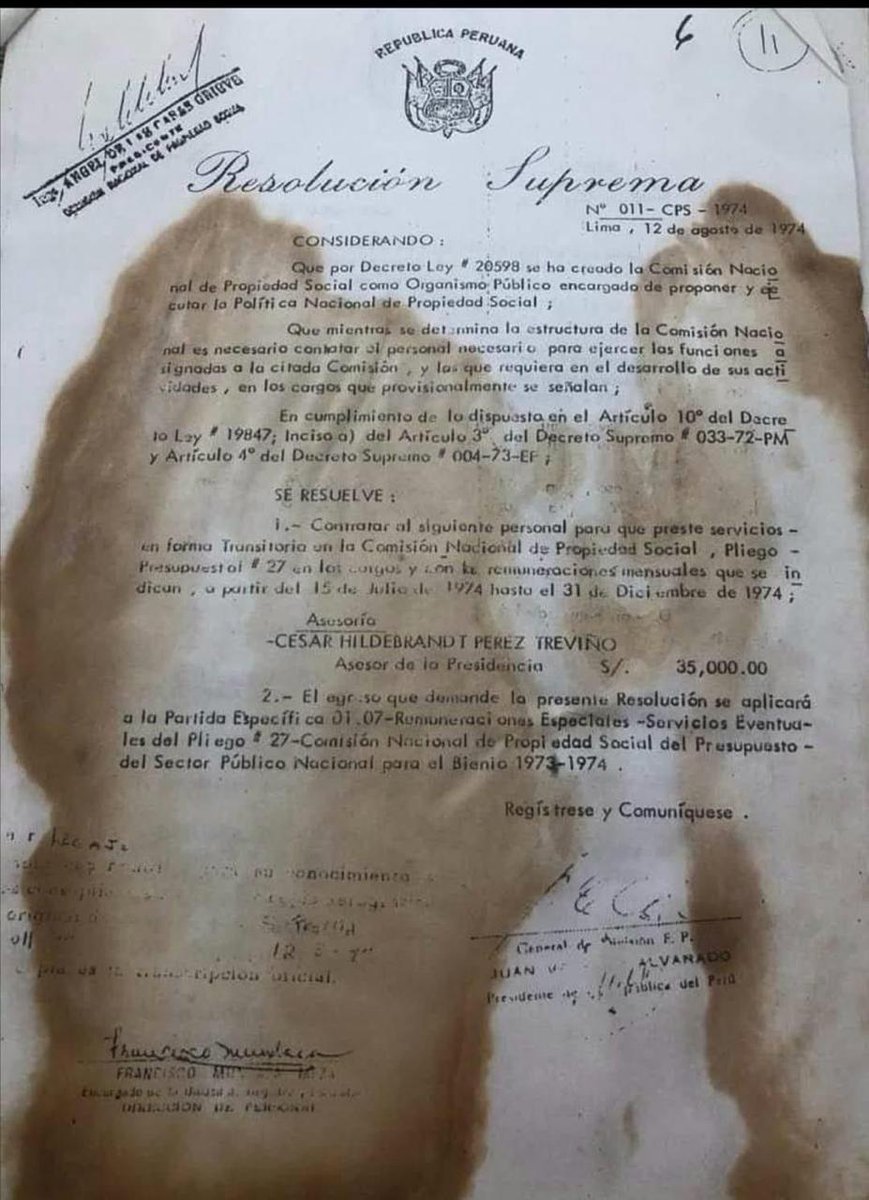 6
11
REPUBLICA PERUANA
ANGEL DE LAS CASAS GRIEVE
PRESIDENTE
NACIONAL DE PROPIEDAD SOCIAL
Resolución Suprema
Nº 011- CPS - 1974
Lima , 12 de agosto de 1974
CONSIDERANDO :
Que por Decreto Ley # 20598 se ha creado la Comisión Nacio
nal de Propiedad Social como Organismo Público encargado de proponer y eje
cutar la Política Nacional de Propiedad Social ;
Que mientras se determina la estructura de la Comisión Nacio
nal es necesario contratar al personal necesario para ejercer las funciones a
signadas a la citada Comisión , y las que requiera en el desarrollo de sus acti
vidades , en los cargos que provisionalmente se señalan ;
En cumplimiento de lo dispuesto en el Artículo 10º del Decre
to Ley # 19847; Inciso a) del Artículo 3º, del Decreto Supremo # 033-72-PM
y Artículo 4º del Decreto Supremo # 004-73-EF ;
SE RESUELVE :
1.- Contratar al siguiente personal para que preste servicios -
en forma Transitoria en la Comisión Nacional de Propiedad Social , Pliego -
Presupuestal # 27 en los cargos y con las remuneraciones mensuales que se in
dican , a partir del 15 de Julio de 1974 hasta el 31 de Diciembre de 1974 ;
Asesoría
-CESAR HILDEBRANDT PEREZ TREVIÑO
Asesor de la Presidencia S/. 35,000.00
2.- El egreso que demande la presente Resolución se aplicará
a la Partida Específica 01.07-Remuneraciones Especiales -Servicios Eventua-
les del Pliego # 27-Comisión Nacional de Propiedad Social del Presupuesto -
del Sector Público Nacional para el Bienio 1973-1974 .
Regístrese y Comuníquese .
su conocimiento
transcripción oficial.
General de División E. P.
JUAN ALVARADO
Presidente de República del Perú
Francisco
FRANCISCO
Encargado de la
DIRECCION DE PERSONAL